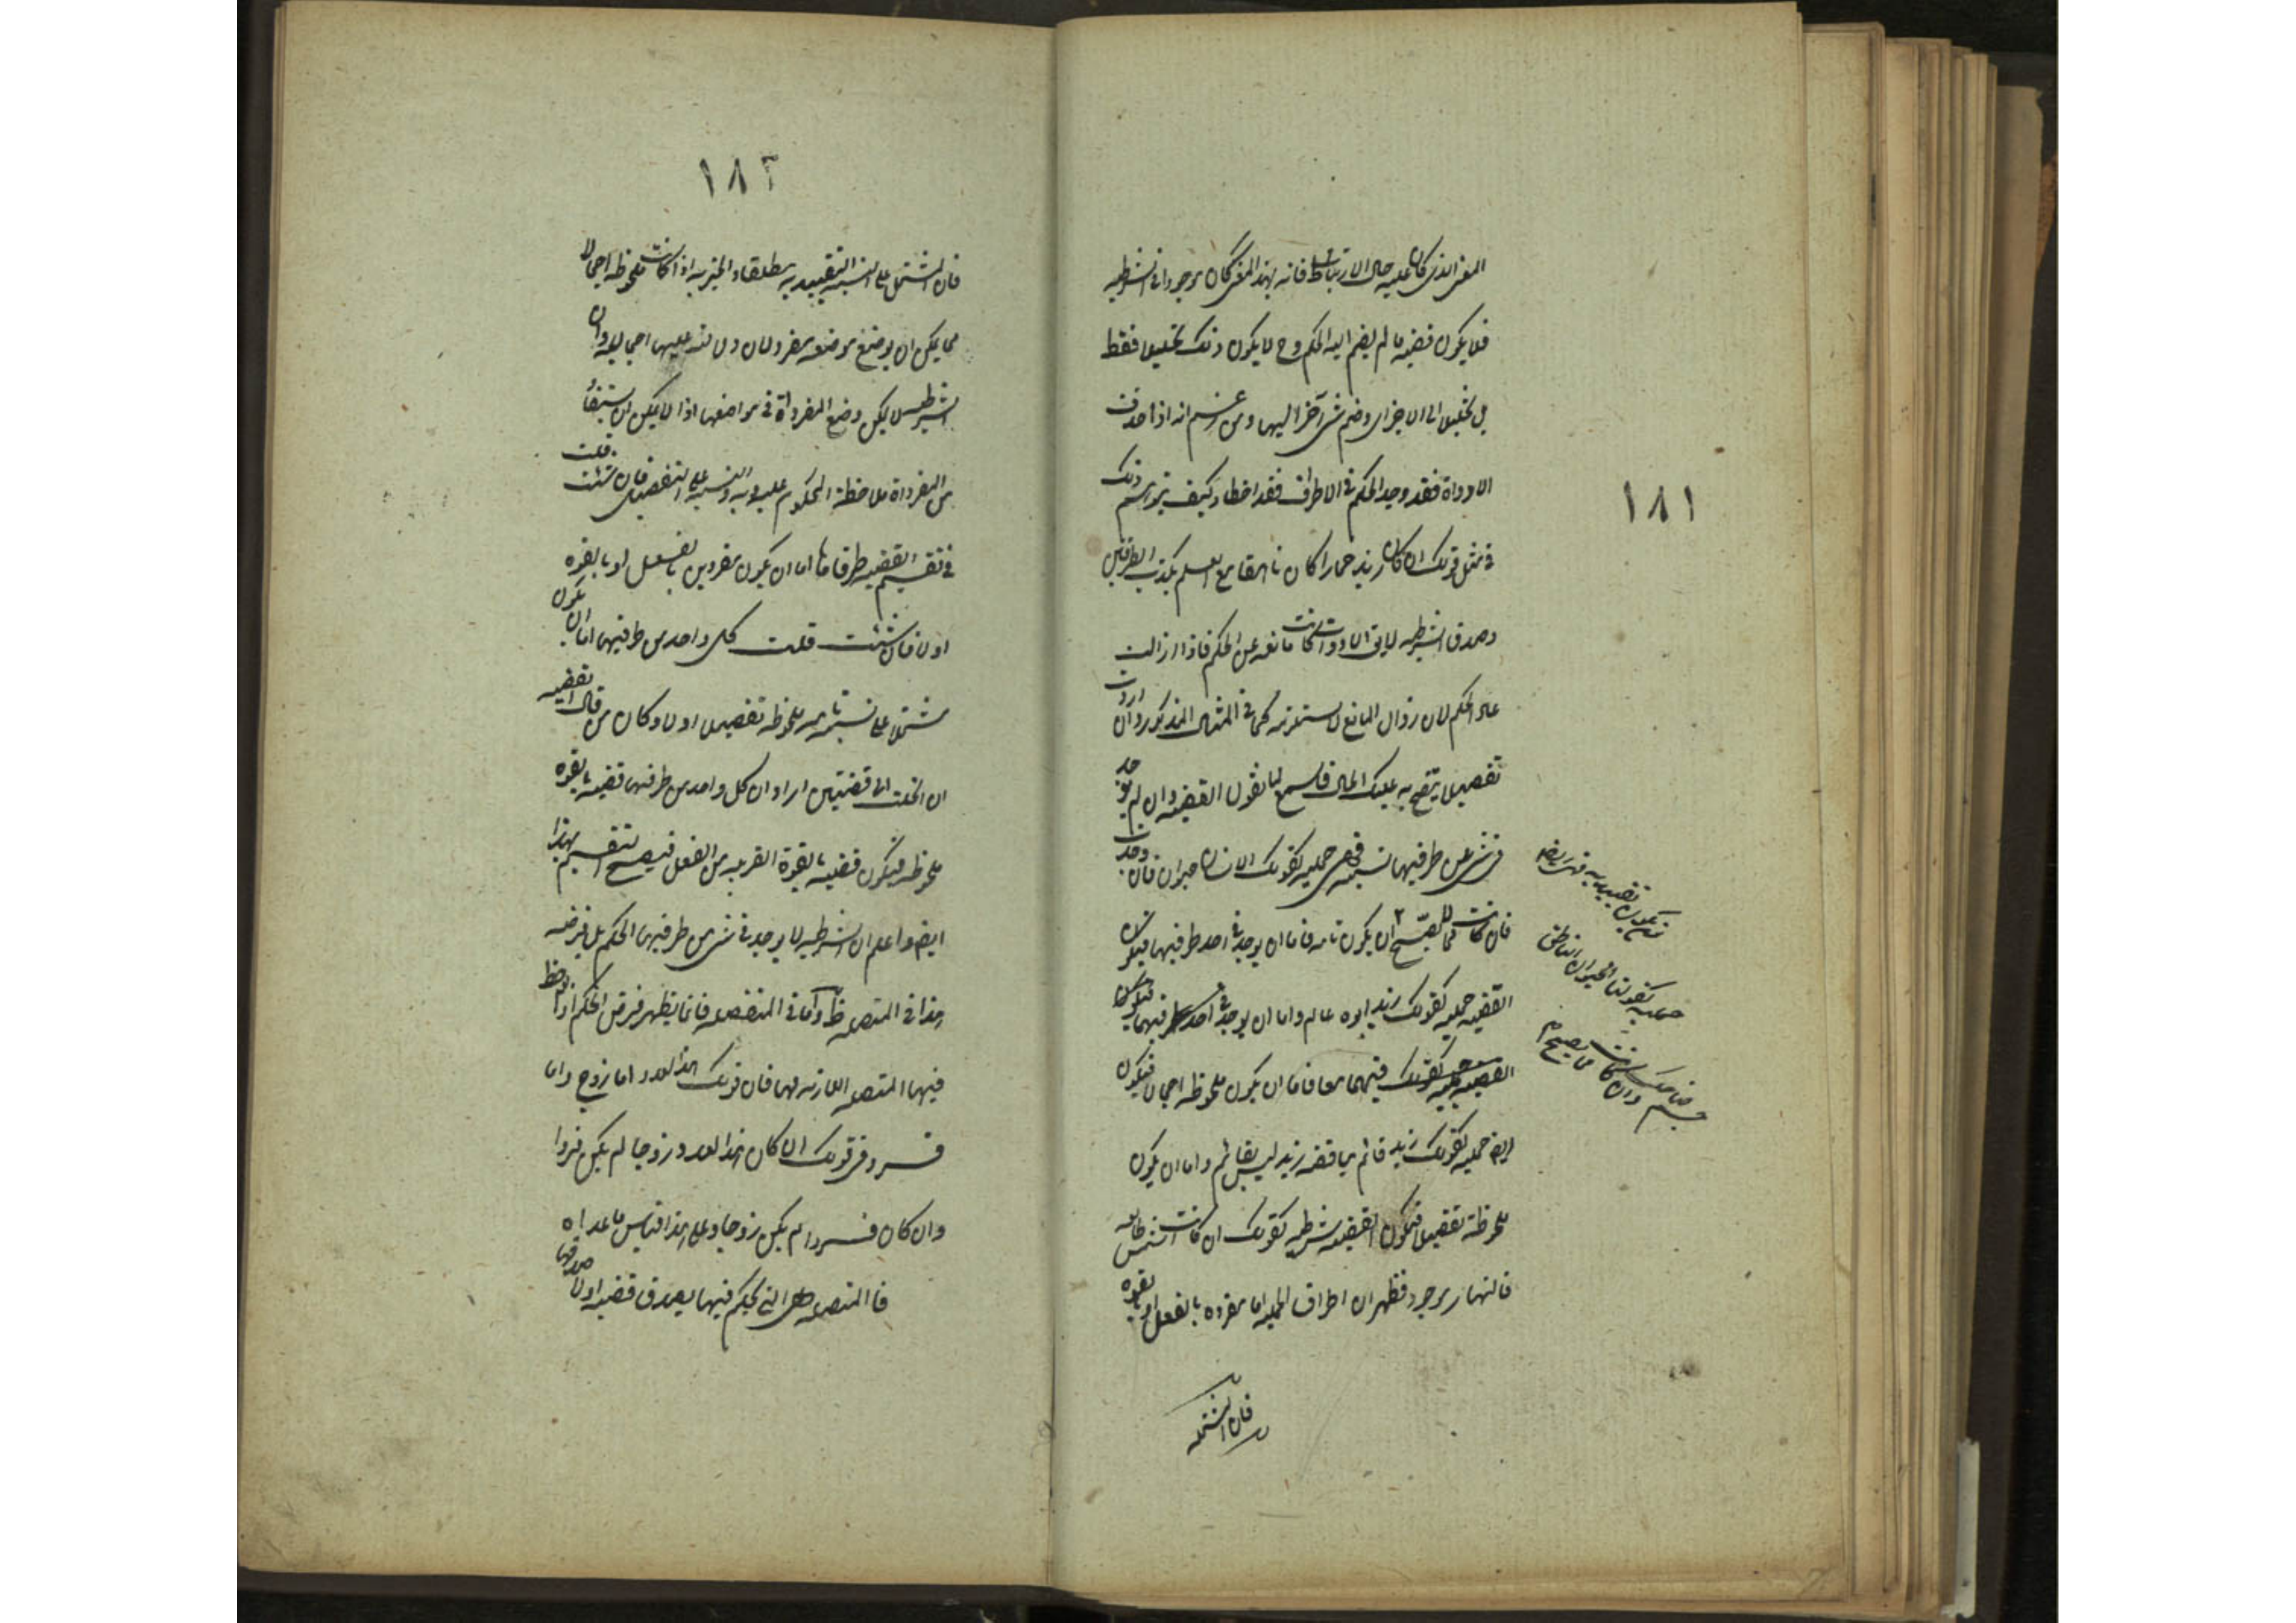 ١٨١
المعنى الذى كان عليه حال الارتباط فانه بهذا المعنى كان موجودا فى الشرطية
فلا يكون قضية ما لم يضم اليه الحكم وح لا يكون ذلك تحليلا فقط
بل تحليلا الى الاجزاء وضم شئ آخر اليها ومن زعم انه اذا حذفت
الادواة فقد وجد الحكم فى الاطراف فقد اخطاء وكيف يتوهم ذلك
فى مثل قولك ان كان زيد حمارا كان ناهقا مع العلم بكذب الطرفين
وصدق الشرطية لا يق الادوات كانت مانعة عن الحكم فاذا ازالت
عاد الحكم لان زوال المانع لا يستلزمه كما فى المثال المذكور وان اردت
تفصيلا يتضح به عليك الحال فاسمع لما نقول القضية ان لم يوجد
فى شئ من طرفيها نسبة فهى حملية كقولك الانسان حيوان فان وجدت
فان كانت مما لا يصح ان يكون تامة فاما ان يوجد فى احد طرفيها فيكون
القضية حملية كقولك زيد ابوه عالم واما ان يوجد فى احد طرفيها فيكون
القضية حملية كقولك فيهما معا فاما ان يكون ملحوظة اجمالا فيكون
ايضا حملية كقولك زيد قائم يناقضه زيد ليس بقائم واما ان يكون
ملحوظة تفصيلا فيكون القضية شرطية كقولك ان كانت الشمس طالعة
فالنهار موجود فظهر ان اطراف الحملية اما مفردة بالفعل او بالقوة
فان المشتملة
تقييدية فهى ايضا
حملية كقولنا الحيوان الناطق
جسم ضاحك وان كانت مما يصح ان
١٨٢
فان المشتمل على النسبة التقييدية مطلقا والخبرية اذا كانت ملحوظة اجمالا
مما يمكن ان يوضع موضعه مفرد لان دلالته عليها اجمالية وان
الشرطية لا يمكن وضع المفرداة فى مواضعها اذا لا يمكن ان يستفاد
من المفرداة ملاحظة المحكوم عليه وبه والنسبة على التفصيل فان شئت قلت
فى تقسيم القضية طرفاها اما ان يكون مفردين بالفعل او بالقوة
اولا فان شئت قلت كل واحد من طرفيها اما ان يكون
مشتملا على نسبة تامة ملحوظة تفصيلا اولا وكان من قال القضية
ان انحلت الى قضيتين اراد ان كل واحد من طرفيها قضية بالقوة
ملحوظة فيكون قضية بالقوة القريبة من الفعل فيصح التقسيم بهذا
ايضا واعلم ان الشرطية لا يوجد فى شئ من طرفيها الحكم بل فرضه
هذا فى المتصلة ظ واما فى المنفصلة فانما يظهر فرض الحكم اذا لوحظ
فيها المتصلة اللازمة لها فان قولك هذا العدد اما زوج واما
فرد فى قوة قولك ان كان هذا العدد زوجا لم يكن فردا
وان كان فردا لم يكن زوجا وعلى هذا قياس ما عداه
فالمتصلة هى التى يحكم فيها بصدق قضية او لا صدقها